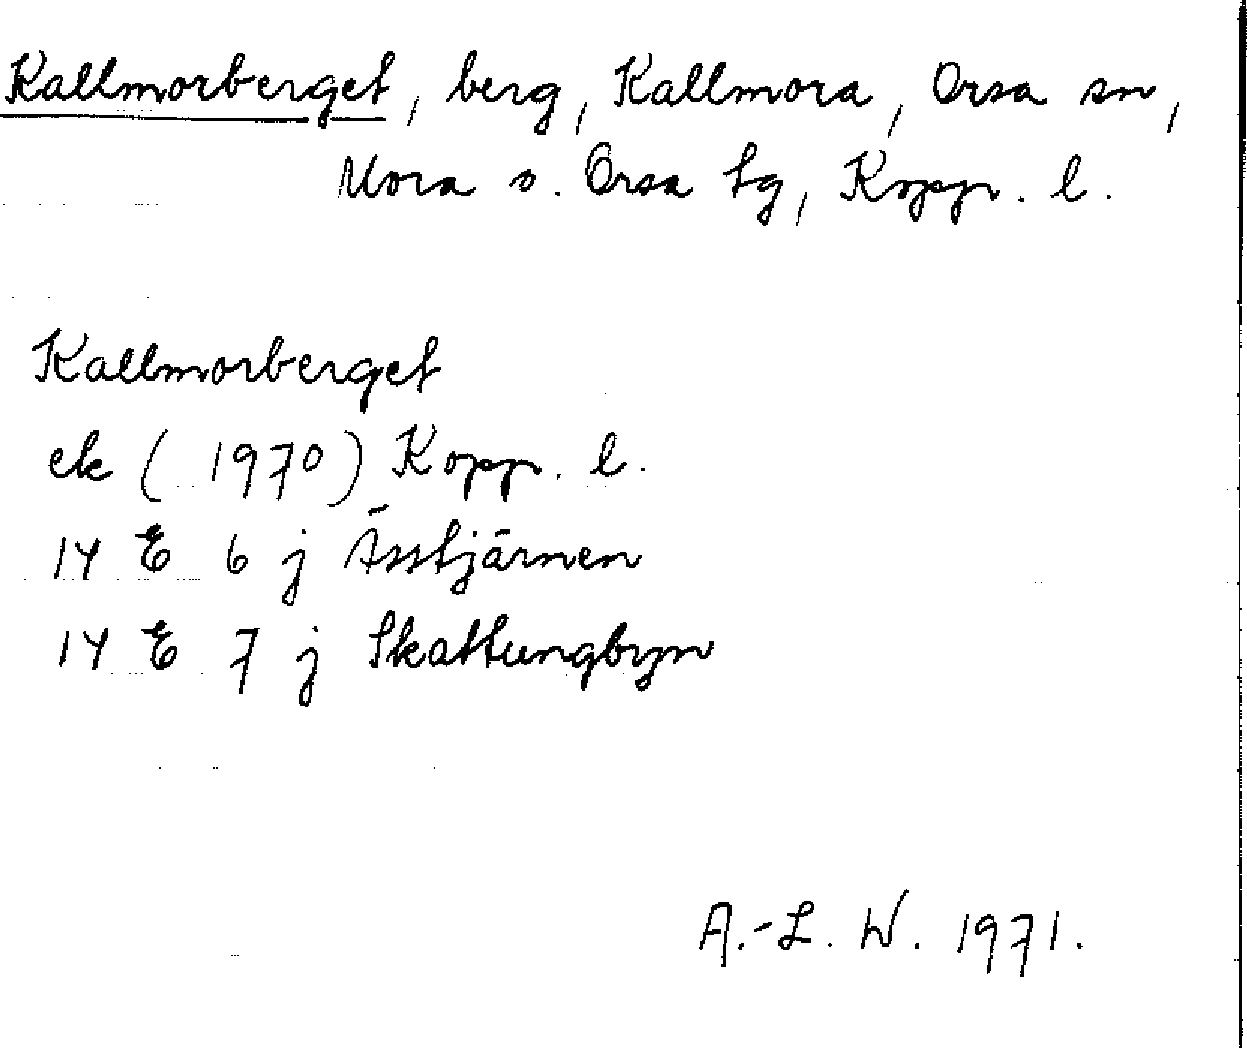 Kallmorberget, berg, Kallmora, Orsa sn,
Mora o. Orsa tg, Kopp. l.
Kallmorberget
ek (1970) Kopp. l.
14 E 6 j Ässtjärnen
14 E 7 j Skattungbyn
A.-L. W. 1971.